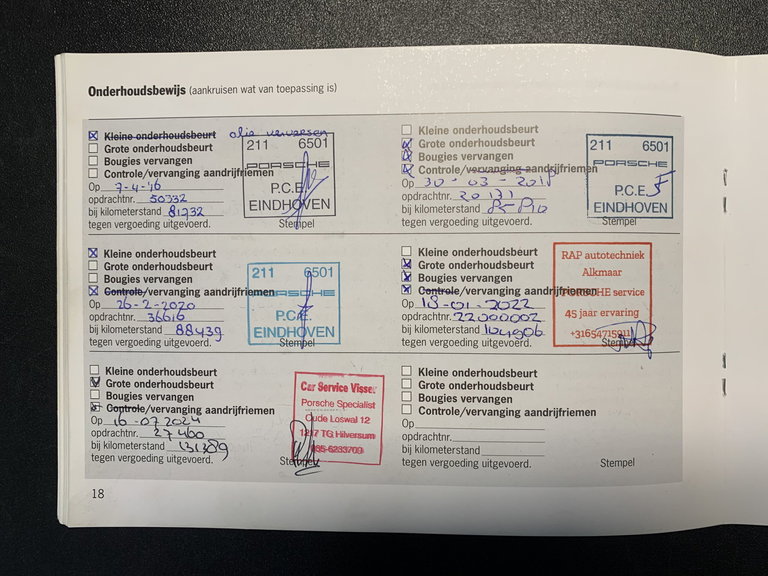 Onderhoudsbewijs (aankruisen wat van toepassing is)
Kleine onderhoudsbeurt olie verversen
Grote onderhoudsbeurt
Bougies vervangen
Controle/vervanging aandrijfriemen
Op 7-4-'16
opdrachtnr. 50332
bij kilometerstand 81232
tegen vergoeding uitgevoerd.
211 6501
PORSCHE
P.C.E.
EINDHOVEN
Stempel
Kleine onderhoudsbeurt
Grote onderhoudsbeurt
Bougies vervangen
Controle/vervanging aandrijfriemen
Op 30-03-2018
opdrachtnr. 20171
bij kilometerstand
tegen vergoeding uitgevoerd.
211 6501
PORSCHE
P.C.E.
EINDHOVEN
Stempel
Kleine onderhoudsbeurt
Grote onderhoudsbeurt
Bougies vervangen
Controle/vervanging aandrijfriemen
Op 26-2-2020
opdrachtnr. 36616
bij kilometerstand 88439
tegen vergoeding uitgevoerd.
211 6501
PORSCHE
P.C.E.
EINDHOVEN
Stempel
Kleine onderhoudsbeurt
Grote onderhoudsbeurt
Bougies vervangen
Controle/vervanging aandrijfriemen
Op 18-01-2022
opdrachtnr. 22000002
bij kilometerstand 104906
tegen vergoeding uitgevoerd.
RAP autotechniek
Alkmaar
PORSCHE service
45 jaar ervaring
+31654715911
Stempel
Kleine onderhoudsbeurt
Grote onderhoudsbeurt
Bougies vervangen
Controle/vervanging aandrijfriemen
Op 16-07-2024
opdrachtnr. 27400
bij kilometerstand 131389
tegen vergoeding uitgevoerd.
Car Service Visser
Porsche Specialist
Oude Loswal 12
1217 TG Hilversum
035-6233709
Stempel
Kleine onderhoudsbeurt
Grote onderhoudsbeurt
Bougies vervangen
Controle/vervanging aandrijfriemen
Op
opdrachtnr.
bij kilometerstand
tegen vergoeding uitgevoerd.
Stempel
18